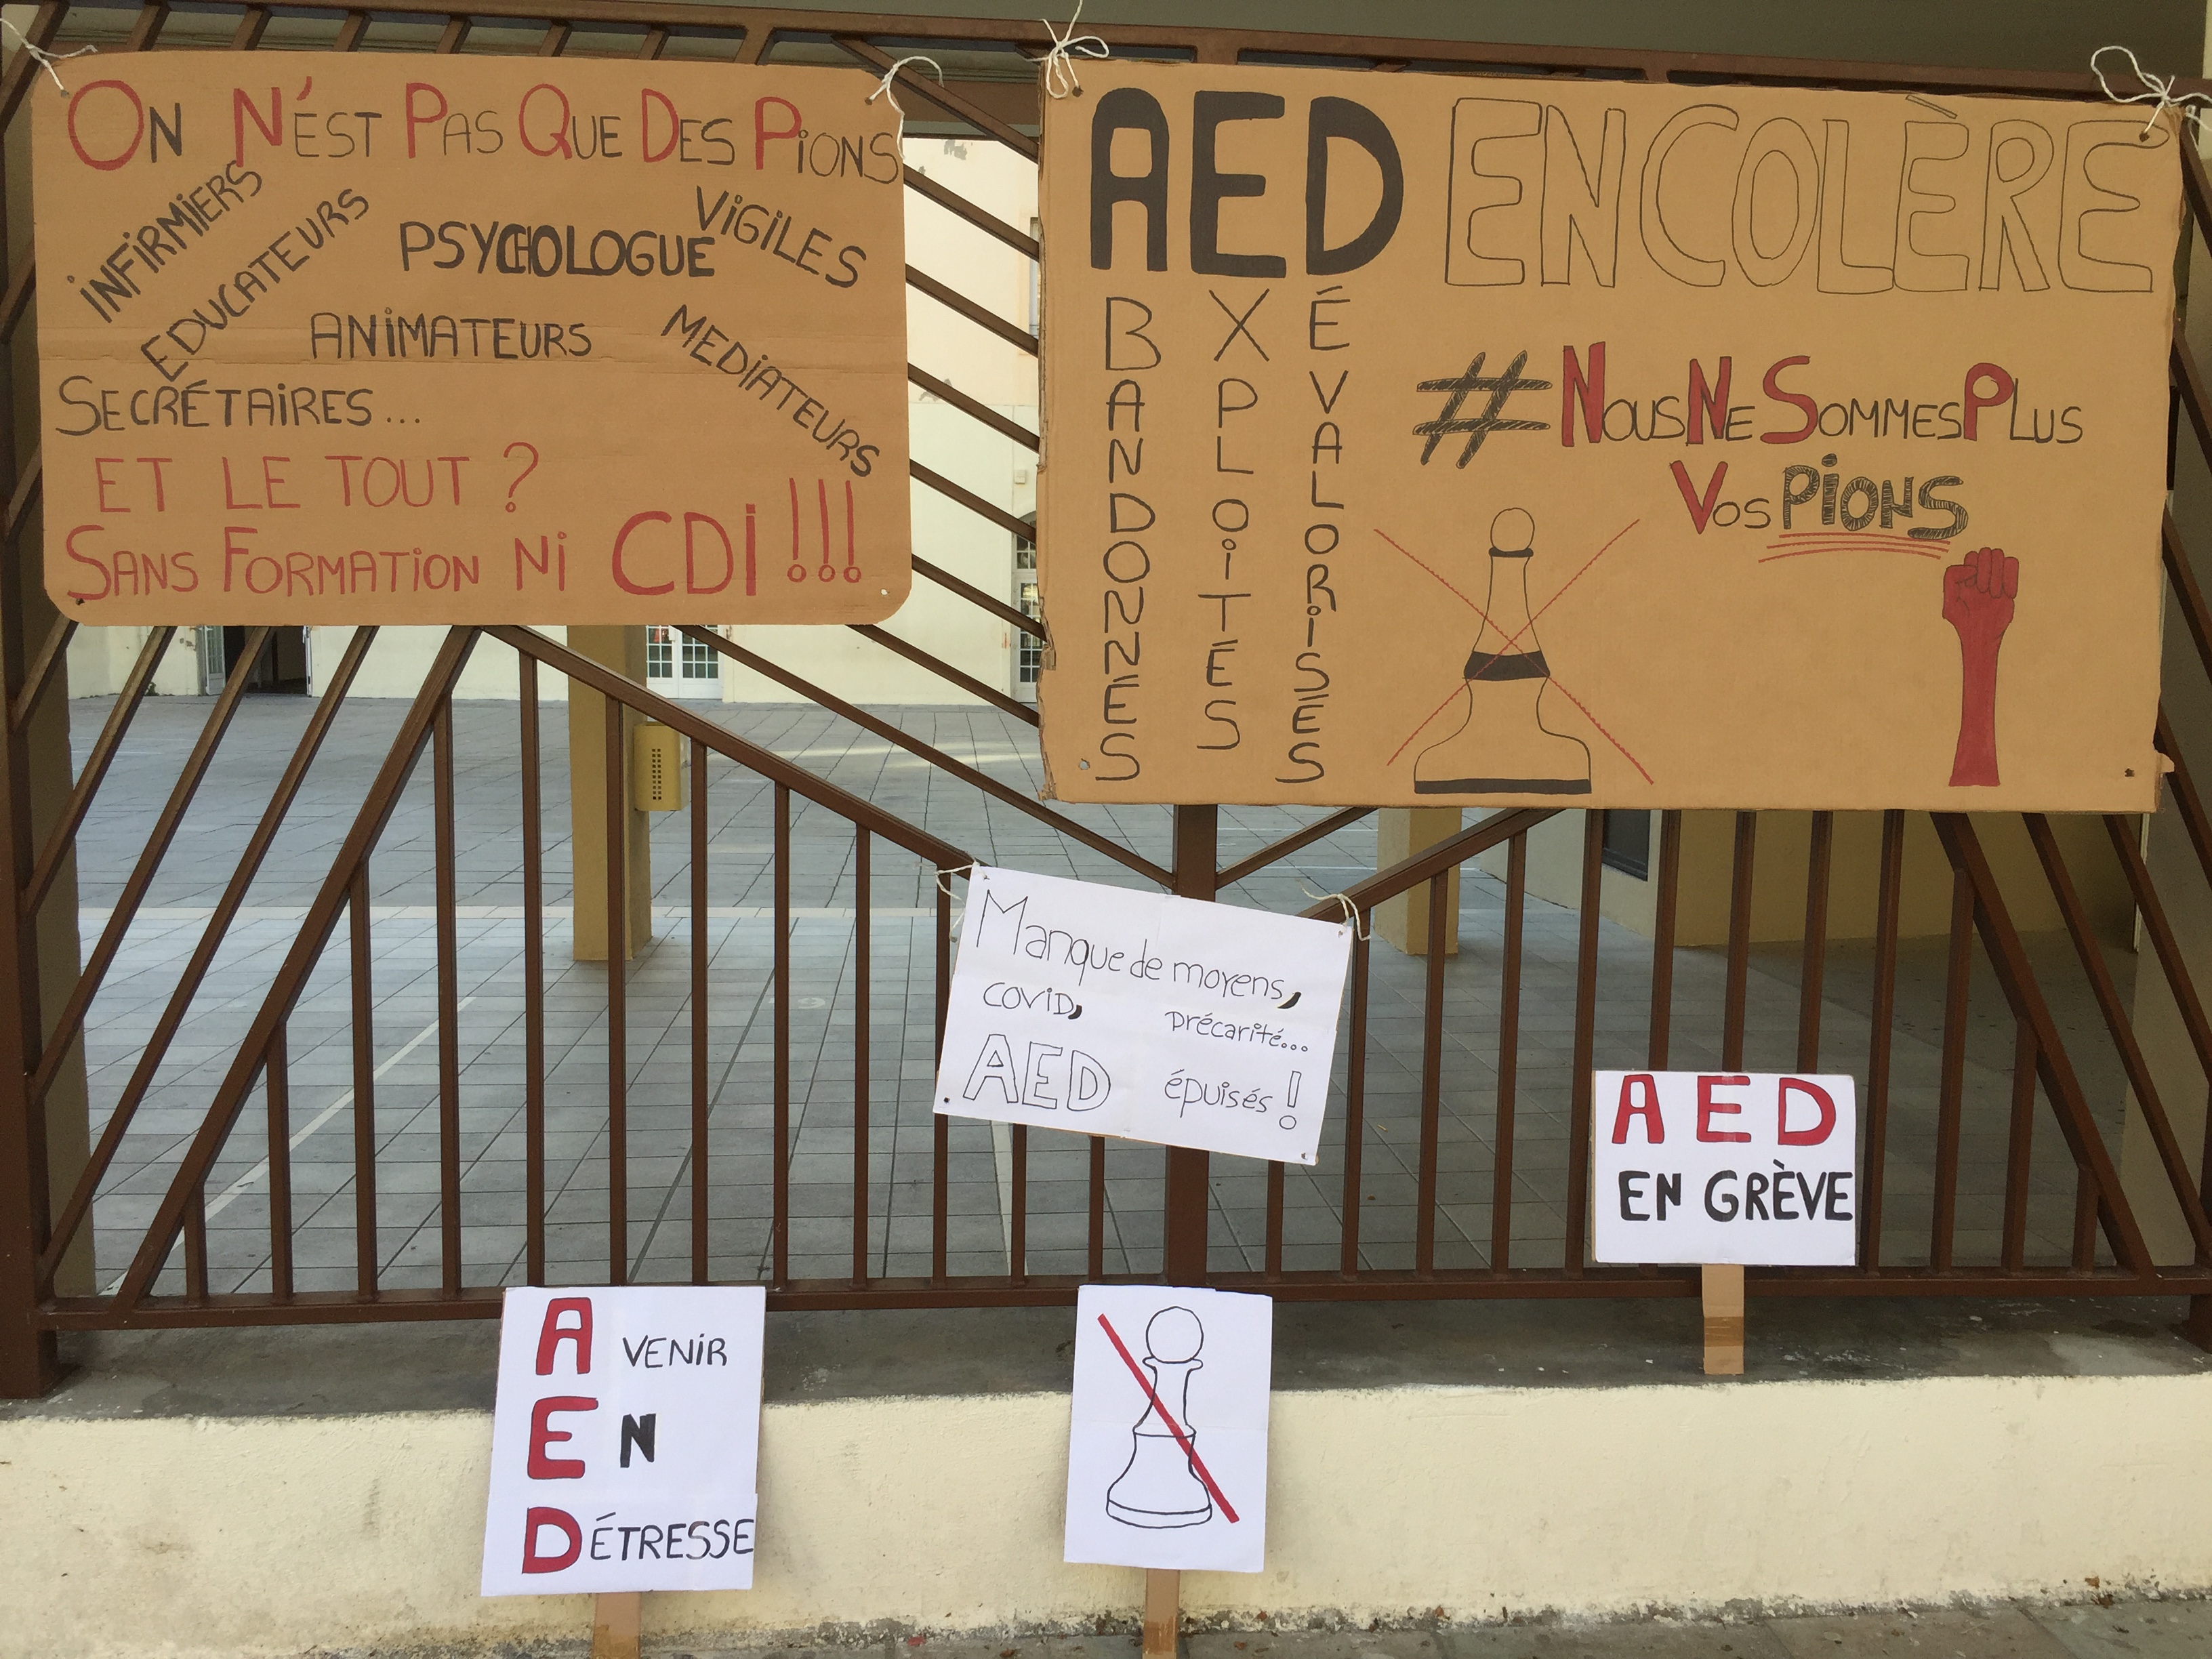 On N'ÉST PAS QUE DES PiONS
iNFiRMiERS
EDUCATEURS
PSYCHOLOGUE
ViGiLES
ANiMATEURS
MEDiATEURS
SECRÉTAiRES...
ET LE TOUT ?
SANS FORMATiON Ni CDi !!!
AED EN COLÈRE
ABANDONNES
EXPLOiTES
DÉVALORiSES
#NOUSNESOMMESPLUS
VOS PiONS
Manque de moyens,
COViD, précarité...
AED épuisés !
AED
EN GRÈVE
AVENiR
EN
DÉTRESSE